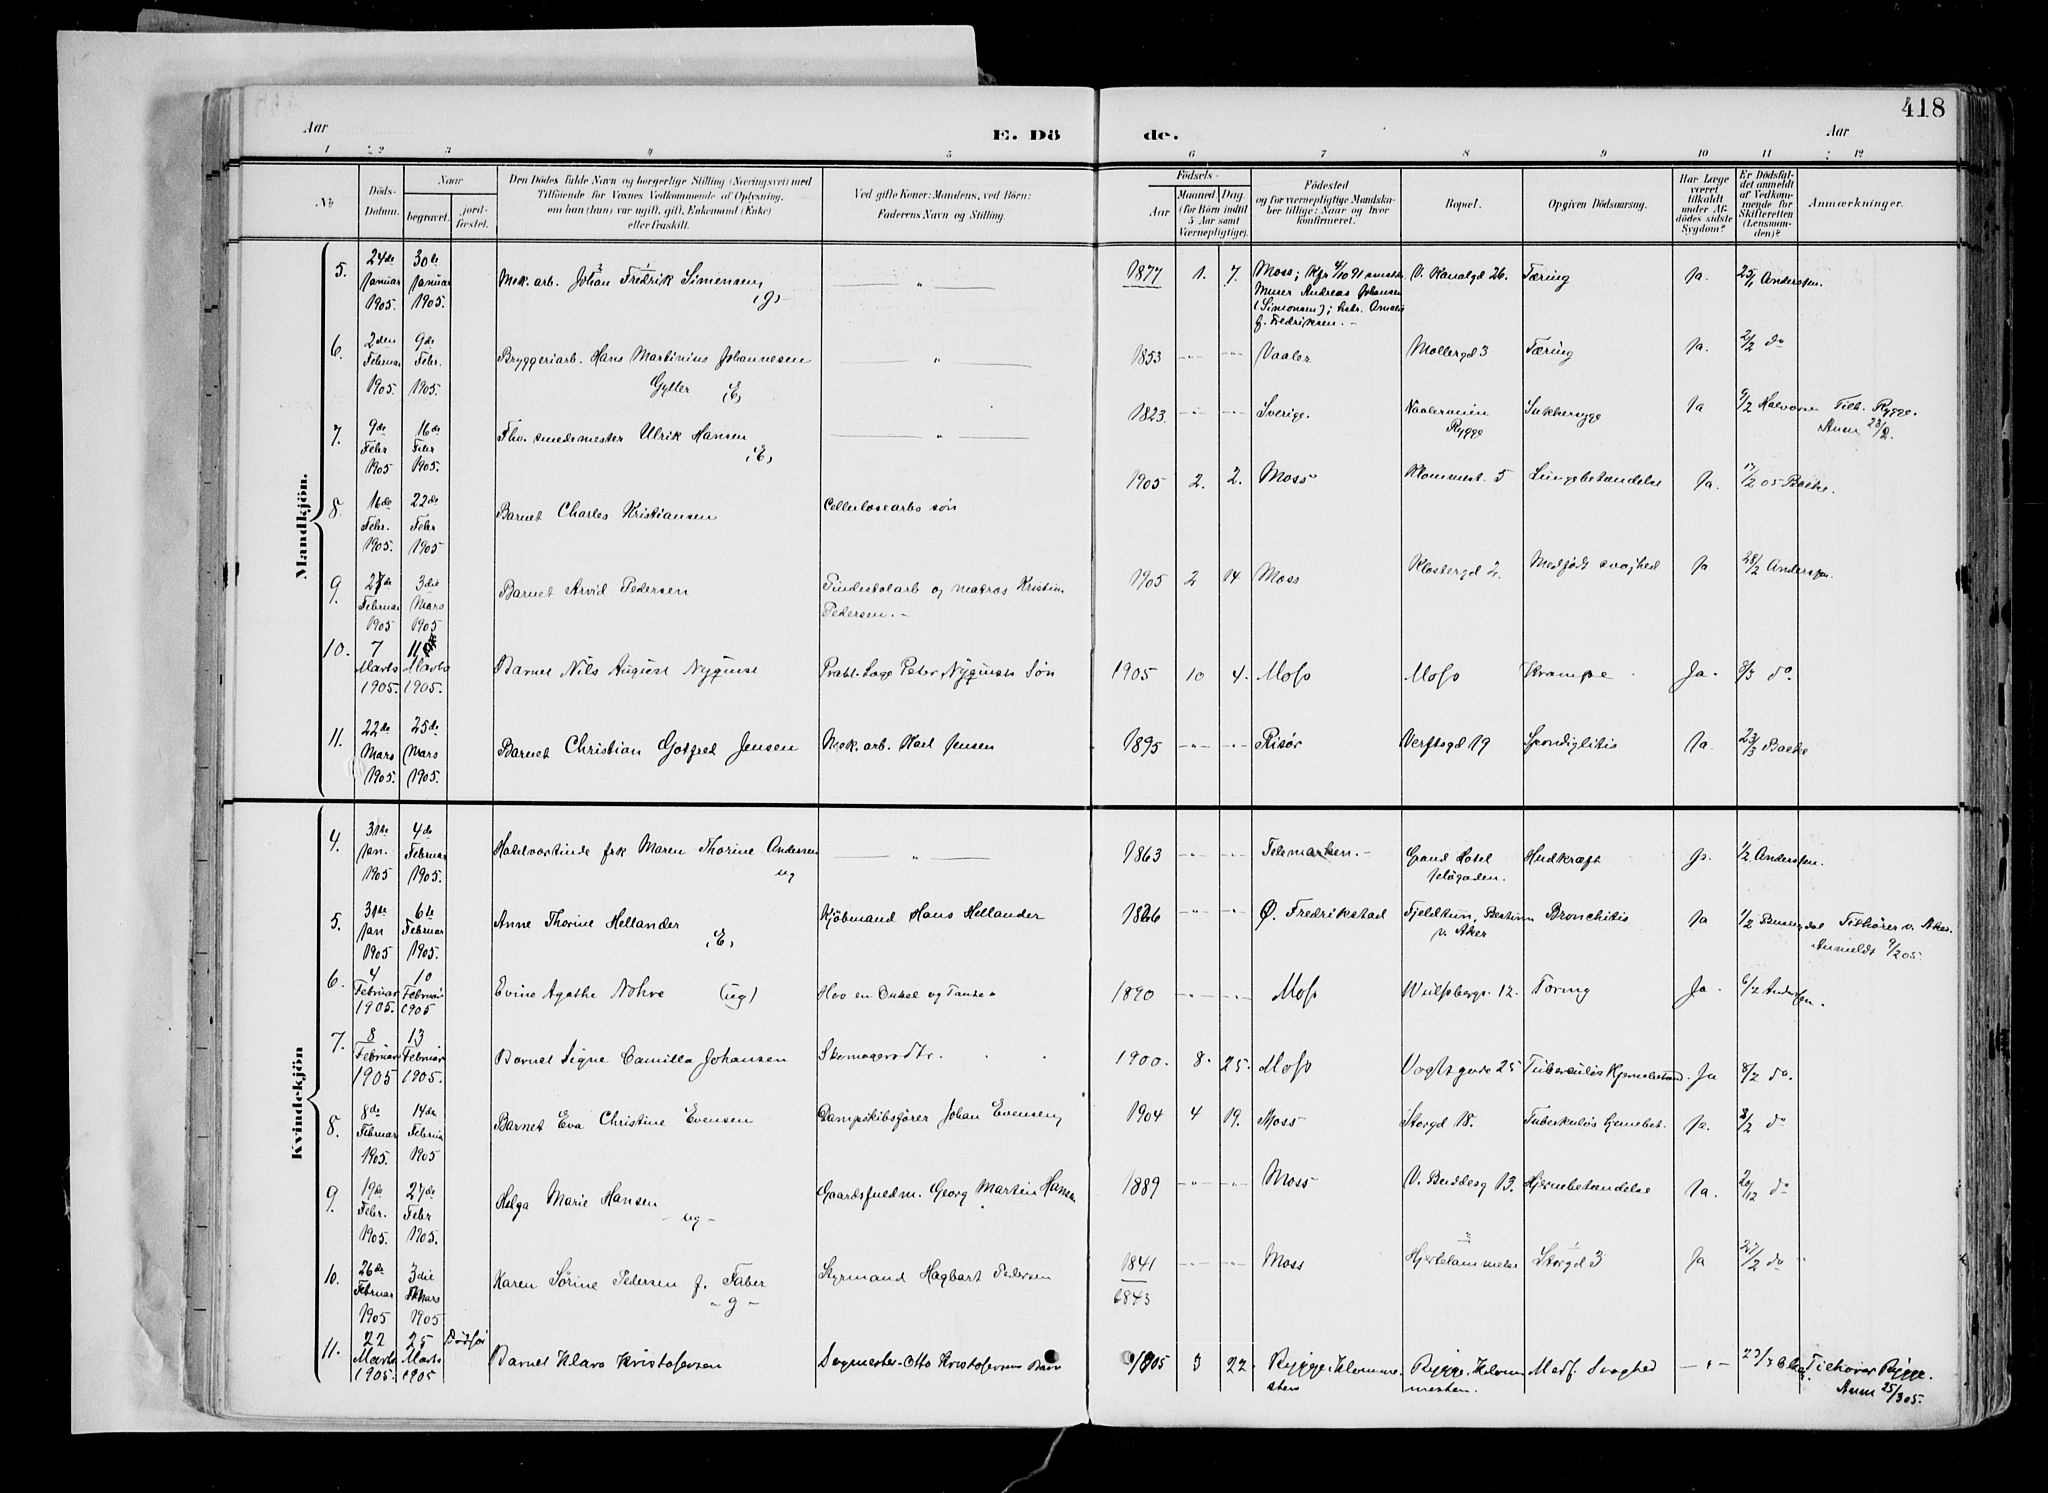 418
Aar E. Dö de. Aar
1 2 3 4 5 6 7 8 9 10 11 12
№
Döds-Datum.
Naar
begravet.
jord-fæstet.
Den Dödes fulde Navn og borgerlige Stilling (Næringsvei) med
Tilföiende for Voxnes Vedkommende af Oplysning,
om han (hun) var ugift, gift, Enkemand (Enke)
eller fraskilt.
Ved gifte Koner: Mandens, ved Börn:
Faderens Navn og Stilling.
Födsels-
Aar
Maaned Dag
(for Börn indtil
5 Aar samt
Værnepligtige).
Födested
og for værnepligtige Mandska-
ber tillige: Naar og hvor
konfirmeret.
Bopæl.
Opgiven Dödsaarsag.
Har Læge
været
tilkaldt
under Af-
dödes sidste
Sygdom?
Er Dödsfal-
det anmeldt
af Vedkom-
mende for
Skifteretten
(Lensman-
den)?
Anmærkninger.
Mandkjön.
5. 24de Januar 1905. 30de Januar 1905. Mek. arb. Johan Fredrik Simensen (g) — „ — 1877 1. 7. Moss; Kfr 4/10 91 smstd. Murer Andreas Johansen (Simonsen); hstr. Amalie f. Fredriksen. — V. Kanalgd 26. Tæring Ja. 25/1 Anderssen.
6. 2den Februar 1905. 9de Febr. 1905. Bryggeriarb. Hans Martinius Johannesen Gylter (E) — „ — 1853 -„- -„- Vaaler Møllergd 3 Tæring Ja. 2/2 do
7. 9de Febr 1905 16de Febr 1905. Fhv. smedemester Ulrik Hansen (E) — „ — 1823 -„- -„- Sverige. Vaalerveien Rygge Sukkersyge Ja 9/2 Halvorsen Tilh. Rygge. Anm 23/2.
8. 16de Febr. 1905. 22de Febr 1905 Barnet Charles Kristiansen Cellulosearbs søn 1905 2. 2. Moss Lungebetændelse Ja. 17/2 05 Bakke.
9. 27de Februar 1905 3die Mars 1905 Barnet Arvid Pedersen Pindestolarb og matros Kristian Pedersen. — 1905 2 14 Moss Klostergd 2. Medfødt svaghed Ja 28/2 Anderssen.
10. 7 Marts 1905. 11 Marts 1905. Barnet Nils August Nyquist Prakt. Læge Peter Nyquists Søn 1905 10 4. Moss Moss Krampe Ja. 8/3 do.
11. 22de Mars 1905. 25de Mars 1905. Barnet Christian Gotfred Jensen Mek. arb. Karl Jensen 1895 -„- -„- Risør Verftsgd 19 Spondiglitis Ja. 23/3 Bakke
Kvindekjön
4. 31te Jan. 1905 4de Februar 1905. Hotelvertinde frk Maren Thorine Andersen ug — „ — 1863 -„- -„- Telemarken. — Grand Hotel Jeløgaden. Hudkræft Ja. 1/2 Anderssen.
5. 31te Jan 1905 6te Februar 1905. Anne Thorine Hellander (E) Kjøbmand Hans Hellander 1826 -„- -„- Ø. Fredrikstad Fjeldtun, Bestum v. Aker Bronchitis Ja 1/2 Tilhører v. Aker. Anmeldt 9/2 05.
6. 4 Februar 1905. 10 Februar 1905 Evine Agathe Nohre (ug) Hos en Onkel og Tante. 1890 -„- -„- Moss Wulfsbergs. 12. Tæring Ja. 6/2 Anderssen.
7. 8 Februar 1905 13 Februar 1905. Barnet Signe Camilla Johansen Skomagers dtr. 1900. 8. 25. Moss Vogtsgade 25 Tuberculøs Hjernebetænd. Ja 8/2 do.
8. 8de Februar 1905. 14de Februar 1905 Barnet Eva Christine Evensen Dampskibsfører Johan Evensen 1904 4 19. Moss Storgd 18. Tuberkuløs hjernebet. Ja. 8/2 do
9. 19de Febr. 1905. 27de Febr 1905. Helga Marie Hansen -ug- Gaardsfuldm. Georg Martin Hansen 1889 -„- -„- Moss V. Buddesg 13. Hjernebetændelse Ja. 20/12 do
10. 26de Februar 1905 3die Mars 1905 Karen Sørine Pedersen f. Faber -g- Styrmand Hagbart Pedersen 1841 1843 -„- -„- Moss Hjertelammelse Storgd 3 Ja 27/2 do
11. 22 Marts 1905. 25 Marts 1905 Barnet Klara Kristofersen Sagmester Otto Kristofersens Barn 1905 3 22 Rygge Klommesten Rygge. Klommesten. Medf. Svaghed — „ — Tilhører Rygge. Anm 25/3 05.